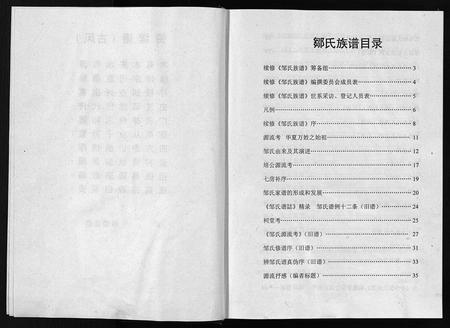 邹氏族谱目录
续修《邹氏族谱》筹备组 3
续修《邹氏族谱》编撰委员会成员表 4
续修《邹氏族谱》世系采访、登记人员表 5
凡例 6
续修《邹氏族谱》序 8
源流考 华夏万姓之始祖 11
邹氏由来及其演进 12
培公源流考 17
七房补序 19
邹氏家谱的形成和发展 20
《邹氏谱誌》精录 邹氏谱例十二条（旧谱） 24
祠堂考 25
《邹氏源流考》（旧谱） 27
邹氏修谱序（旧谱） 31
辨邹氏谱真伪序（旧谱） 33
源流抒感（编者标题） 35